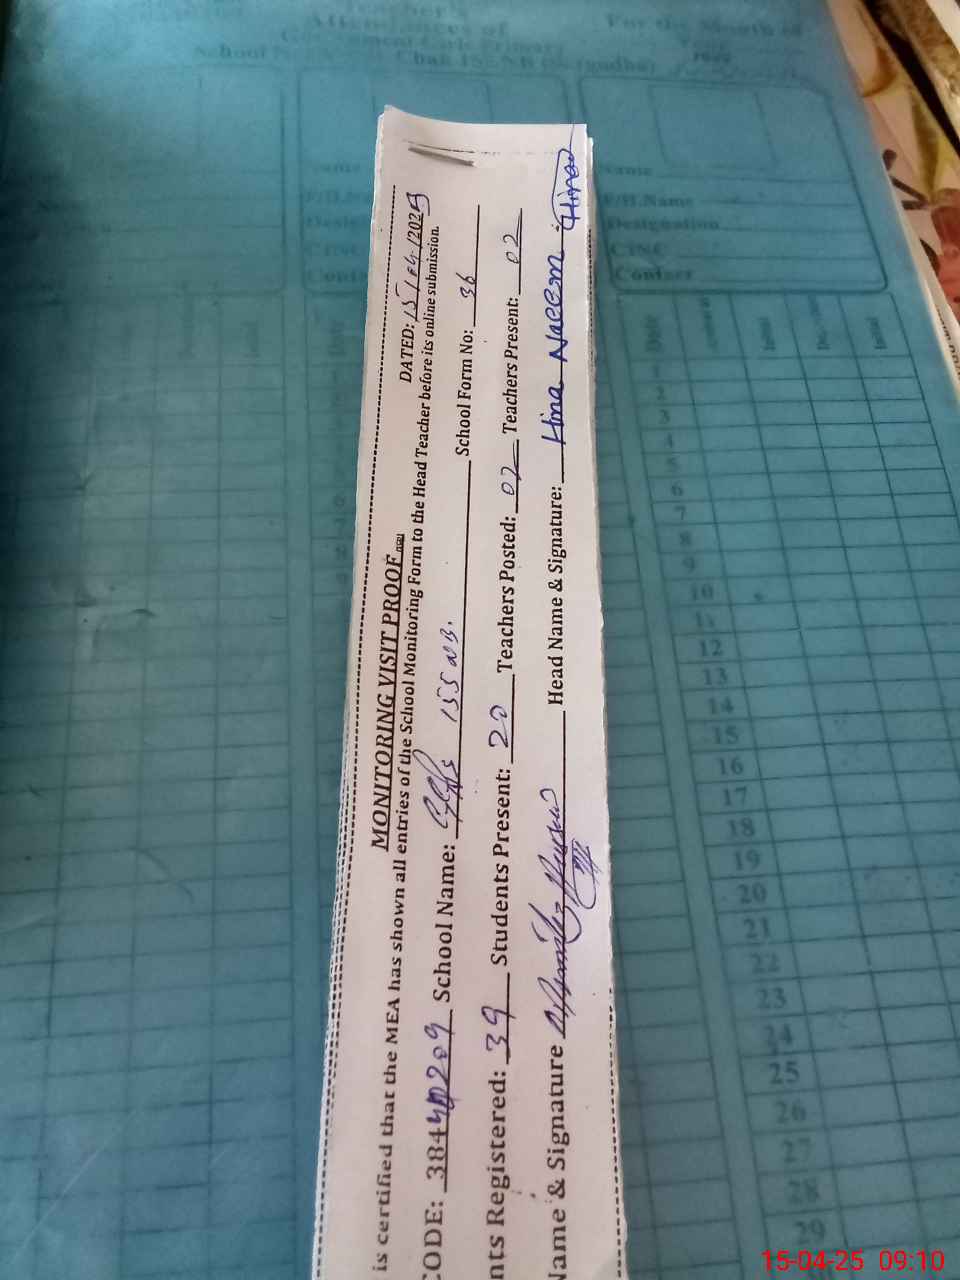 Teacher's
Attendances of
For the Month of
Government Girls Primary
School
Chak 155 NB (Sargodha)
MONITORING VISIT PROOF
DATED: 15/04/2025
is certified that the MEA has shown all entries of the School Monitoring Form to the Head Teacher before its online submission.
CODE: 38440209 School Name: GGPS 155 NB. School Form No: 36
nts Registered: 39 Students Present: 20 Teachers Posted: 02 Teachers Present: 02
Name & Signature Head Name & Signature: Hina Naeem Hina
Name
F/H.Name
Designation
CINC
Contact
Date
1
2
3
4
5
6
7
8
9
10
11
12
13
14
15
16
17
18
19
20
21
22
23
24
25
26
27
28
29
15-04-25 09:10